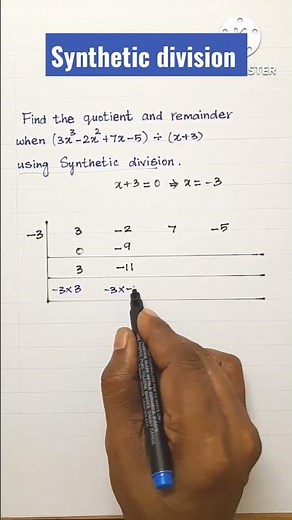 Synthetic division
Find the quotient and remainder
when (3x³-2x²+7x-5) ÷ (x+3)
using Synthetic division.
x+3=0 ⇒ x=-3
-3 3 -2 7 -5
0 -9
3 -11
-3×3 -3×-